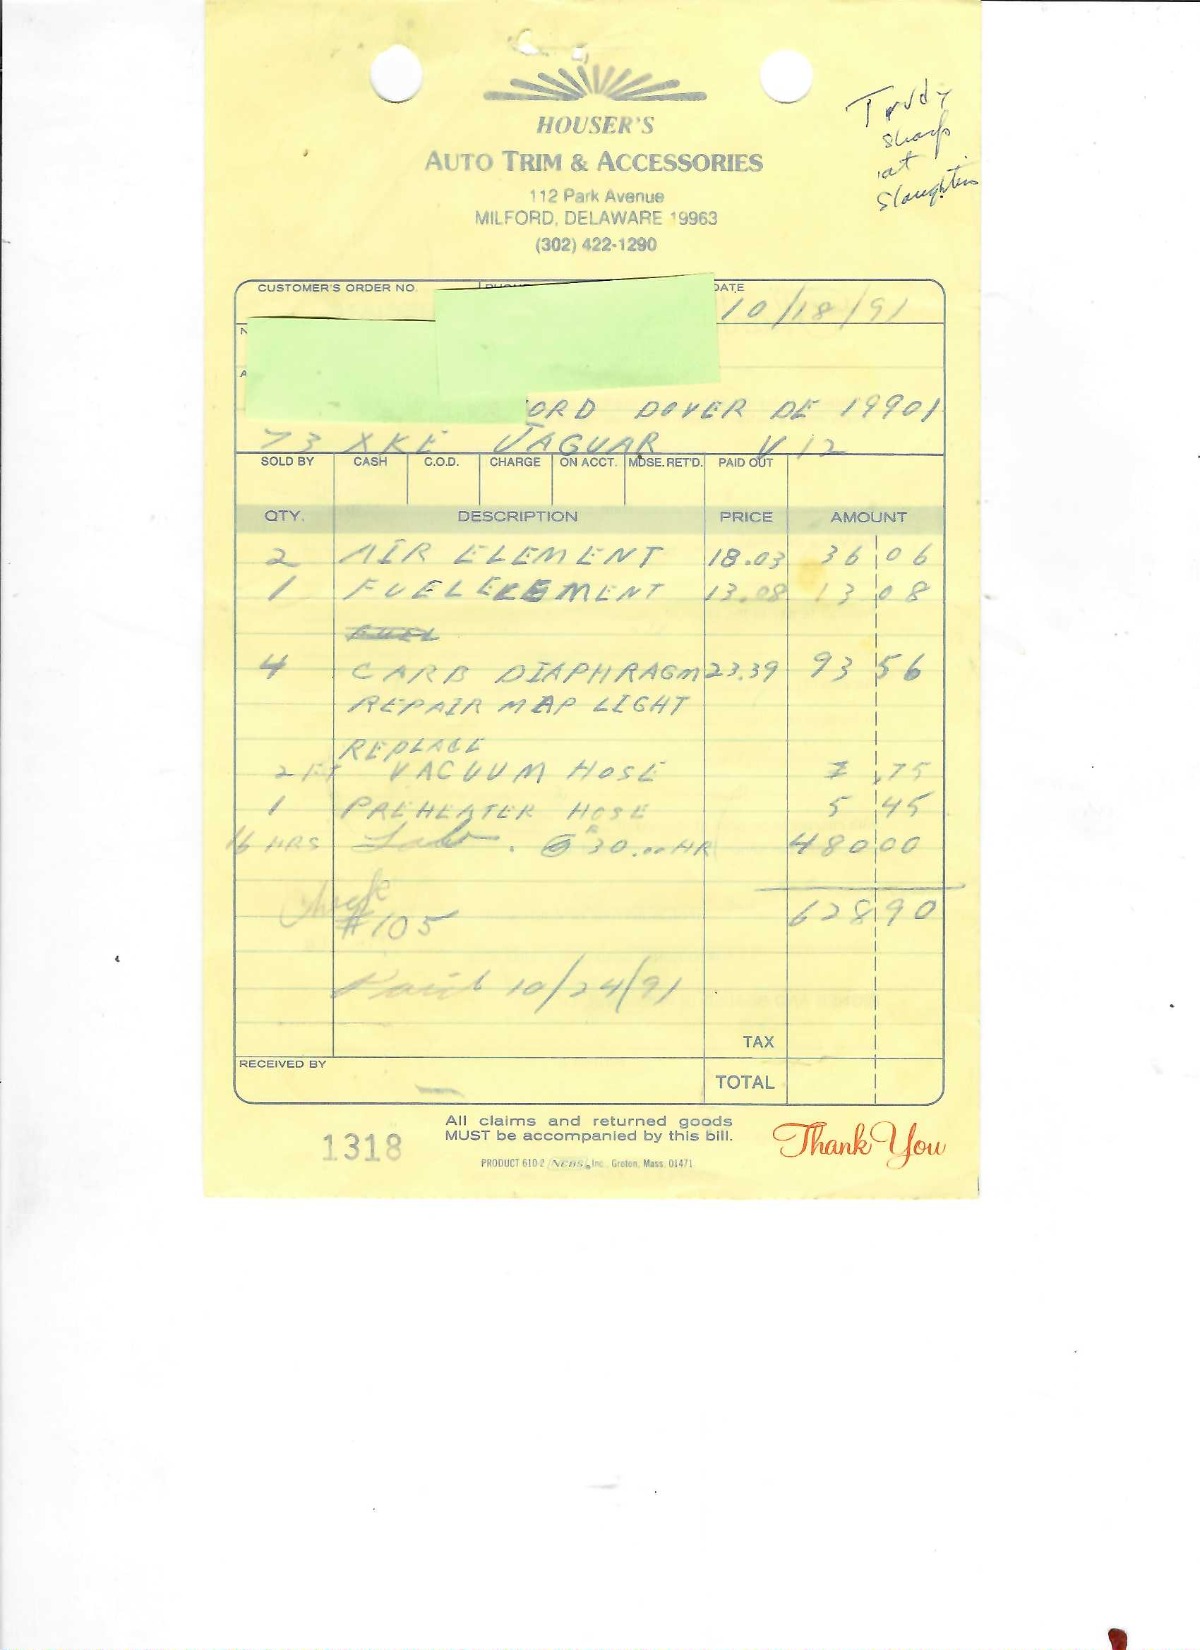 HOUSER'S
AUTO TRIM & ACCESSORIES
112 Park Avenue
MILFORD, DELAWARE 19963
(302) 422-1290
Trudy
Sharp
at
CUSTOMER'S ORDER NO. DATE
10/18/91
N
A
ORD DOVER DE 19901
73 XKE JAGUAR V12
SOLD BY CASH C.O.D. CHARGE ON ACCT. MDSE. RET'D. PAID OUT
QTY. DESCRIPTION PRICE AMOUNT
2 AIR ELEMENT 18.03 36 06
1 FUEL ELEMENT 13.08 13 08
FUEL
4 CARB DIAPHRAGM 23.39 93 56
REPAIR MAP LIGHT
REPLACE
2 FT VACUUM HOSE .75
1 PREHEATER HOSE 5 45
16 HRS Labor @ 30.00 HR 480 00
628 90
Check
#105
Paid 10/24/91
TAX
RECEIVED BY
TOTAL
1318
All claims and returned goods
MUST be accompanied by this bill.
Thank You
PRODUCT 610-2 NEBS, Inc., Groton, Mass. 01471